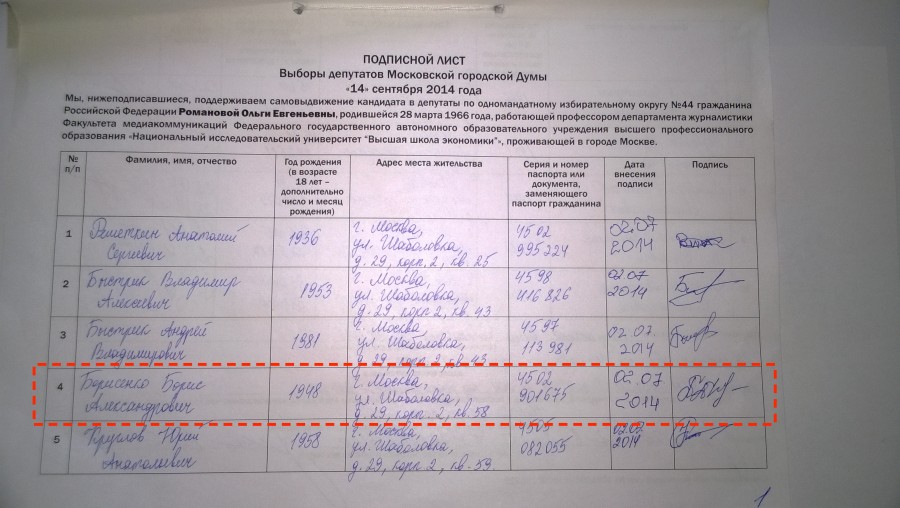 ПОДПИСНОЙ ЛИСТ
Выборы депутатов Московской городской Думы
«14» сентября 2014 года
Мы, нижеподписавшиеся, поддерживаем самовыдвижение кандидата в депутаты по одномандатному избирательному округу №44 гражданина
Российской Федерации Романовой Ольги Евгеньевны, родившейся 28 марта 1966 года, работающей профессором департамента журналистики
Факультета медиакоммуникаций Федерального государственного автономного образовательного учреждения высшего профессионального
образования «Национальный исследовательский университет "Высшая школа экономики"», проживающей в городе Москве.
№ п/п
Фамилия, имя, отчество
Год рождения
(в возрасте
18 лет –
дополнительно
число и месяц
рождения)
Адрес места жительства
Серия и номер
паспорта или
документа,
заменяющего
паспорт гражданина
Дата
внесения
подписи
Подпись
1
Анатолий
Сергеевич
1936
г. Москва,
ул. Шаболовка,
д. 29, корп. 2, кв. 25
4502
995224
02.07
2014
2
Быстрик Владимир
Алексеевич
1953
г. Москва,
ул. Шаболовка,
д. 29, корп 2, кв. 43
4598
416826
02.07
2014
3
Быстрик Андрей
Владимирович
1981
г. Москва,
ул. Шаболовка,
д. 29, корп. 2, кв. 43
4597
113981
02.07.
2014
4
Борисенко Борис
Александрович
1948
г. Москва,
ул. Шаболовка,
д. 29, корп. 2, кв. 58
4502
901675
02.07
2014
5
Круглов Юрий
Анатольевич
1958
г. Москва,
ул. Шаболовка,
д. 29, корп. 2, кв. 59.
4505
082055
02.07
2014
1